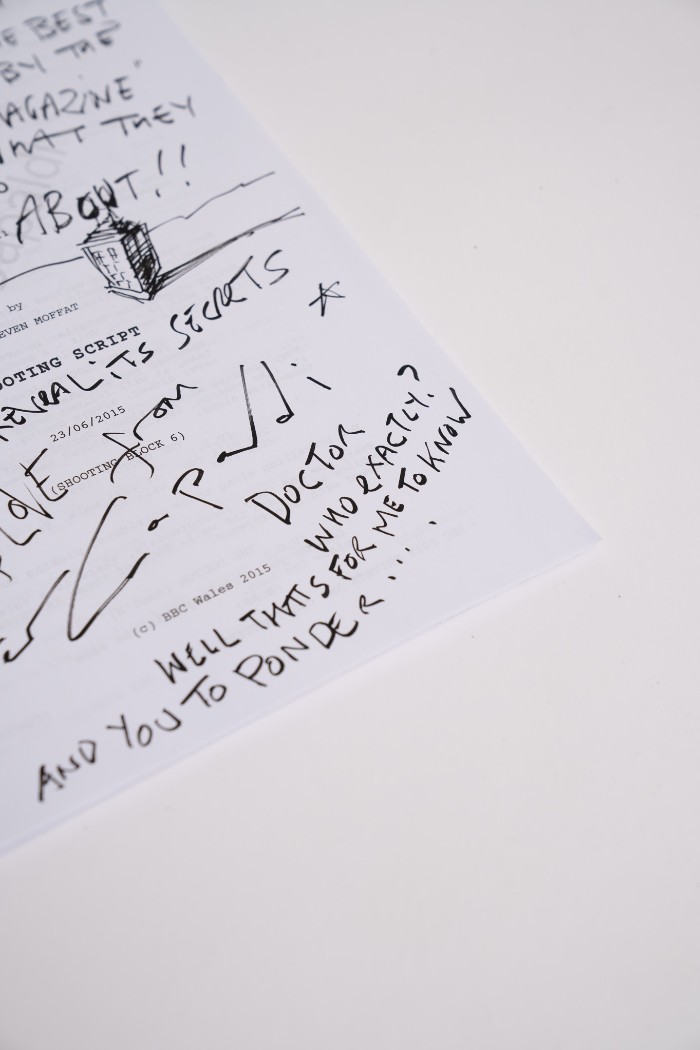 E BEST
BY THE
AGAZINE"
WHAT THEY
ABOUT!!
by
EVEN MOFFAT
OOTING SCRIPT
REVEAL ITS SECRETS
23/06/2015
(SHOOTING BLOCK 6)
LOVE from
Capaldi
DOCTOR
WHO EXACTLY?
(c) BBC Wales 2015
WELL THATS FOR ME TO KNOW
AND YOU TO PONDER.....